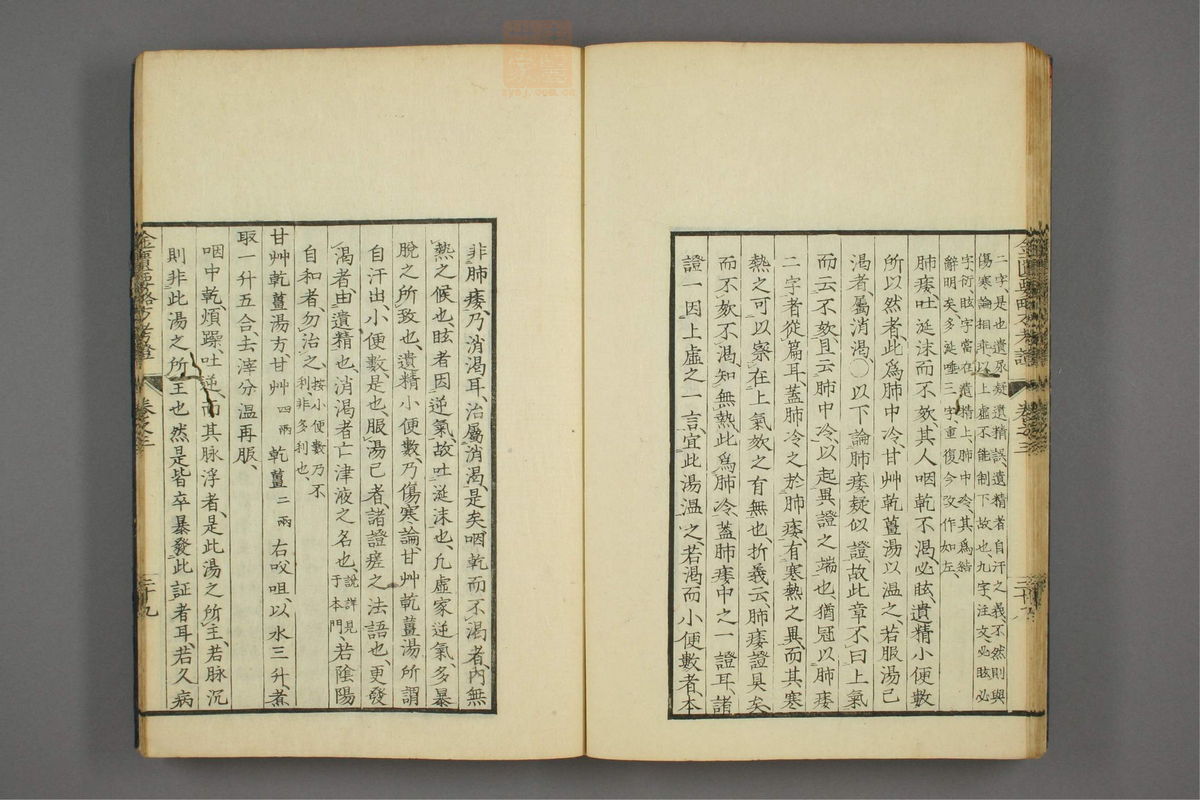 二字、是也、遺尿疑遺精誤、遺精者自汗之義、不然則與
傷寒論相乖、以上虛不能制下故也、九字、注文、必眩必
字、衍、眩字當在遺精上、肺中冷、其爲結
辭明矣、多涎唾三字、重復、今改作如左、
肺痿吐涎沫而不欬、其人咽乾不渴、必眩、遺精小便數、
所以然者、此爲肺中冷、甘艸乾薑湯以溫之、若服湯已
渴者、屬消渴、〇以下論肺痿疑似證、故此章不曰上氣
而云不欬、且云肺中冷、以起異證之端也、猶冠以肺痿
二字者從篇耳、蓋肺冷之於肺痿、有寒熱之異、而其寒
熱之可以察、在上氣欬之有無也、折義云、肺痿證具矣、
而不欬不渴、知無熱、此爲肺冷、蓋肺痿中之一證耳、諸
證一因上虛之一言、宜此湯溫之、若渴而小便數者、本
金匱要略方考證 卷之三 二十九
非肺痿、乃消渴耳、治屬消渴、是矣、咽乾而不渴者、內無
熱之候也、眩者因逆氣、故吐涎沫也、凡虛家逆氣、多暴
脫之所致也、遺精小便數、乃傷寒論、甘艸乾薑湯所謂
自汗出、小便數是也、服湯已者、諸證瘥之法語也、更發
渴者、由遺精也、消渴者亡津液之名也、說詳見于本門、若陰陽
自和者、勿治之、按小便數乃不利、非多利也、
甘艸乾薑湯方、甘艸四兩 乾薑二兩 右㕮咀、以水三升、煮
取一升五合、去滓、分溫再服、
咽中乾、煩躁、吐逆、而其脉浮者、是此湯之所主、若脉沉
則非此湯之所主也、然是皆卒暴發此証者耳、若久病
金匱要略方考證 卷之三 二十九